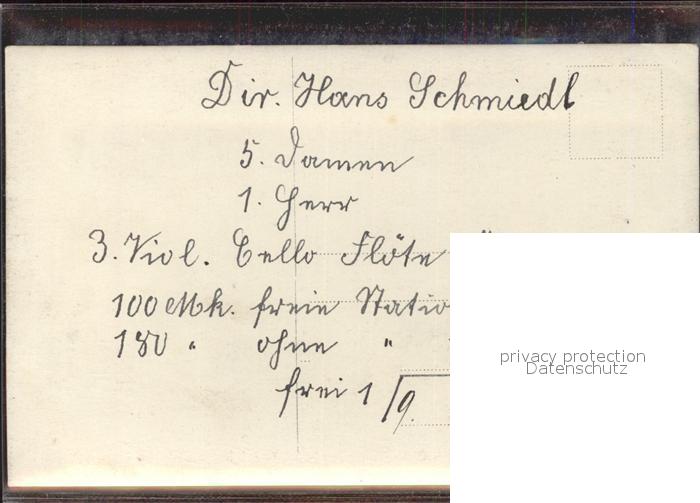 Dir. Hans Schmiedl
5. Damen
1. Herr
3. Viol. Cello Flöte
100 Mk. freie Statio
180 " ohne "
frei 1/9.
privacy protection
Datenschutz